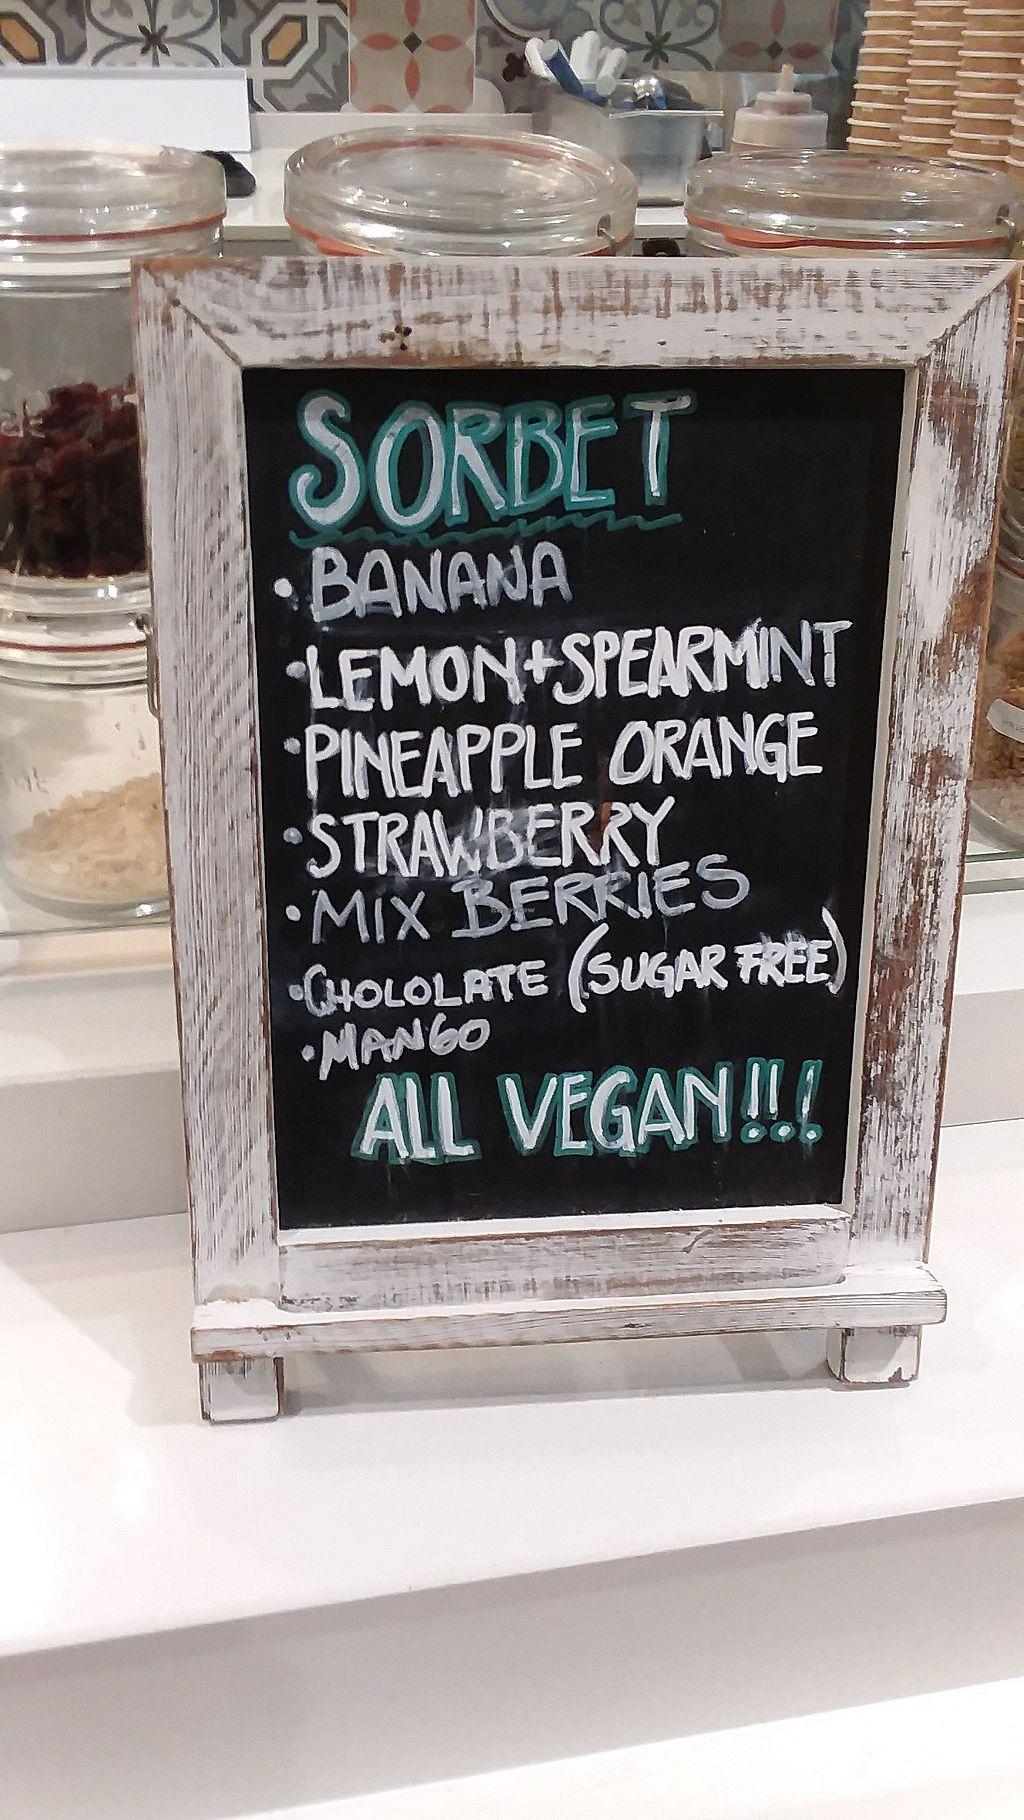 SORBET
• BANANA
• LEMON+SPEARMINT
• PINEAPPLE ORANGE
• STRAWBERRY
• MIX BERRIES
• CHOLOLATE (SUGAR FREE)
• MANGO
ALL VEGAN!!!